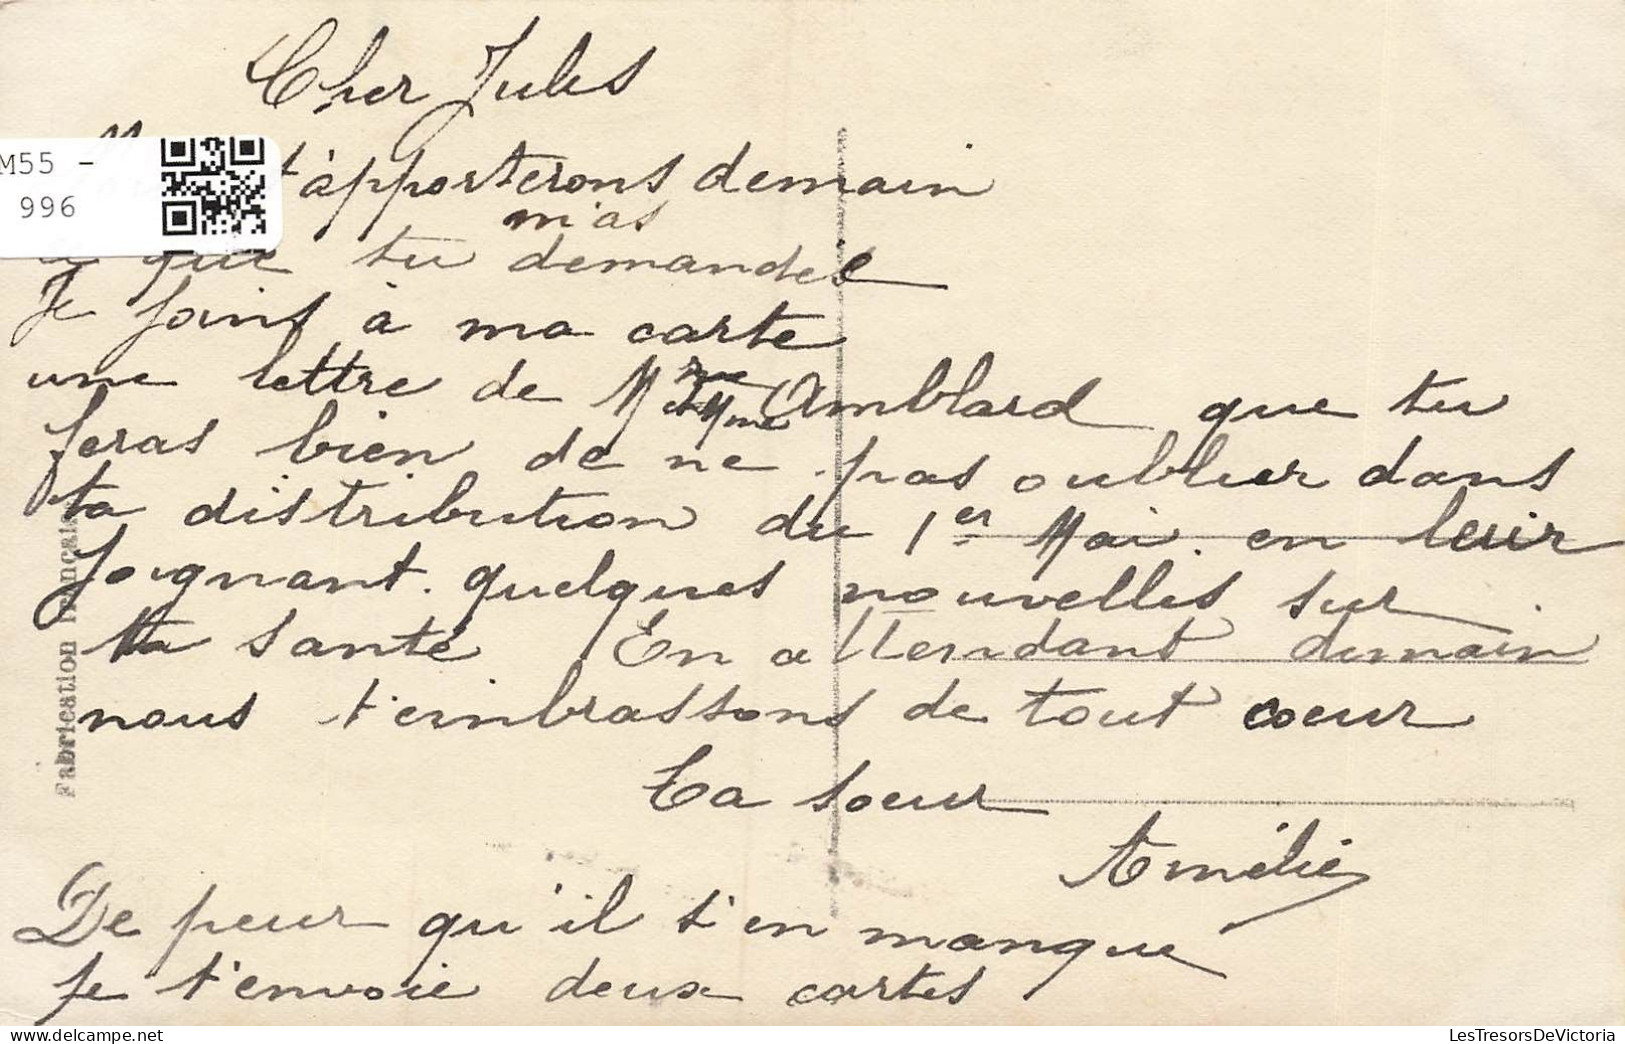 Cher Jules
t'apporterons demain
m'as
ce que tu demandes
Je joins à ma carte
une lettre de Mme Amblard que tu
feras bien de ne pas oublier dans
ta distribution du 1er Mai. en leur
joignant. quelques nouvelles sur
ta santé En attendant demain
nous t'embrassons de tout coeur
Ta soeur
Amélie
De peur qu'il t'en manque
Je t'envoie deux cartes
Fabrication Française
M55 -
996
LesTresorsDeVictoria